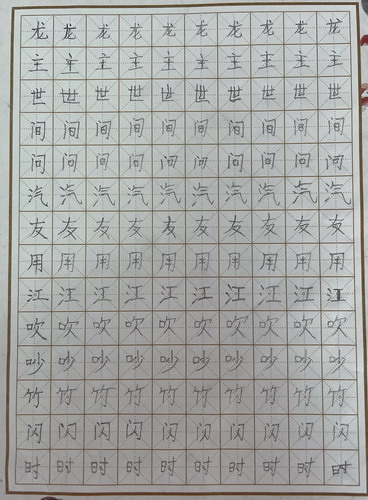 龙龙龙龙龙龙龙龙龙龙
主主主主主主主主主主
世世世世世世世世世世
间间间间间间间间间间
问问问问问问问问问问
汽汽汽汽汽汽汽汽汽汽
友友友友友友友友友友
用用用用用用用用用用
江江江江江江江江江江
吹吹吹吹吹吹吹吹吹吹
吵吵吵吵吵吵吵吵吵吵
竹竹竹竹竹竹竹竹竹竹
闪闪闪闪闪闪闪闪闪闪
时时时时时时时时时时